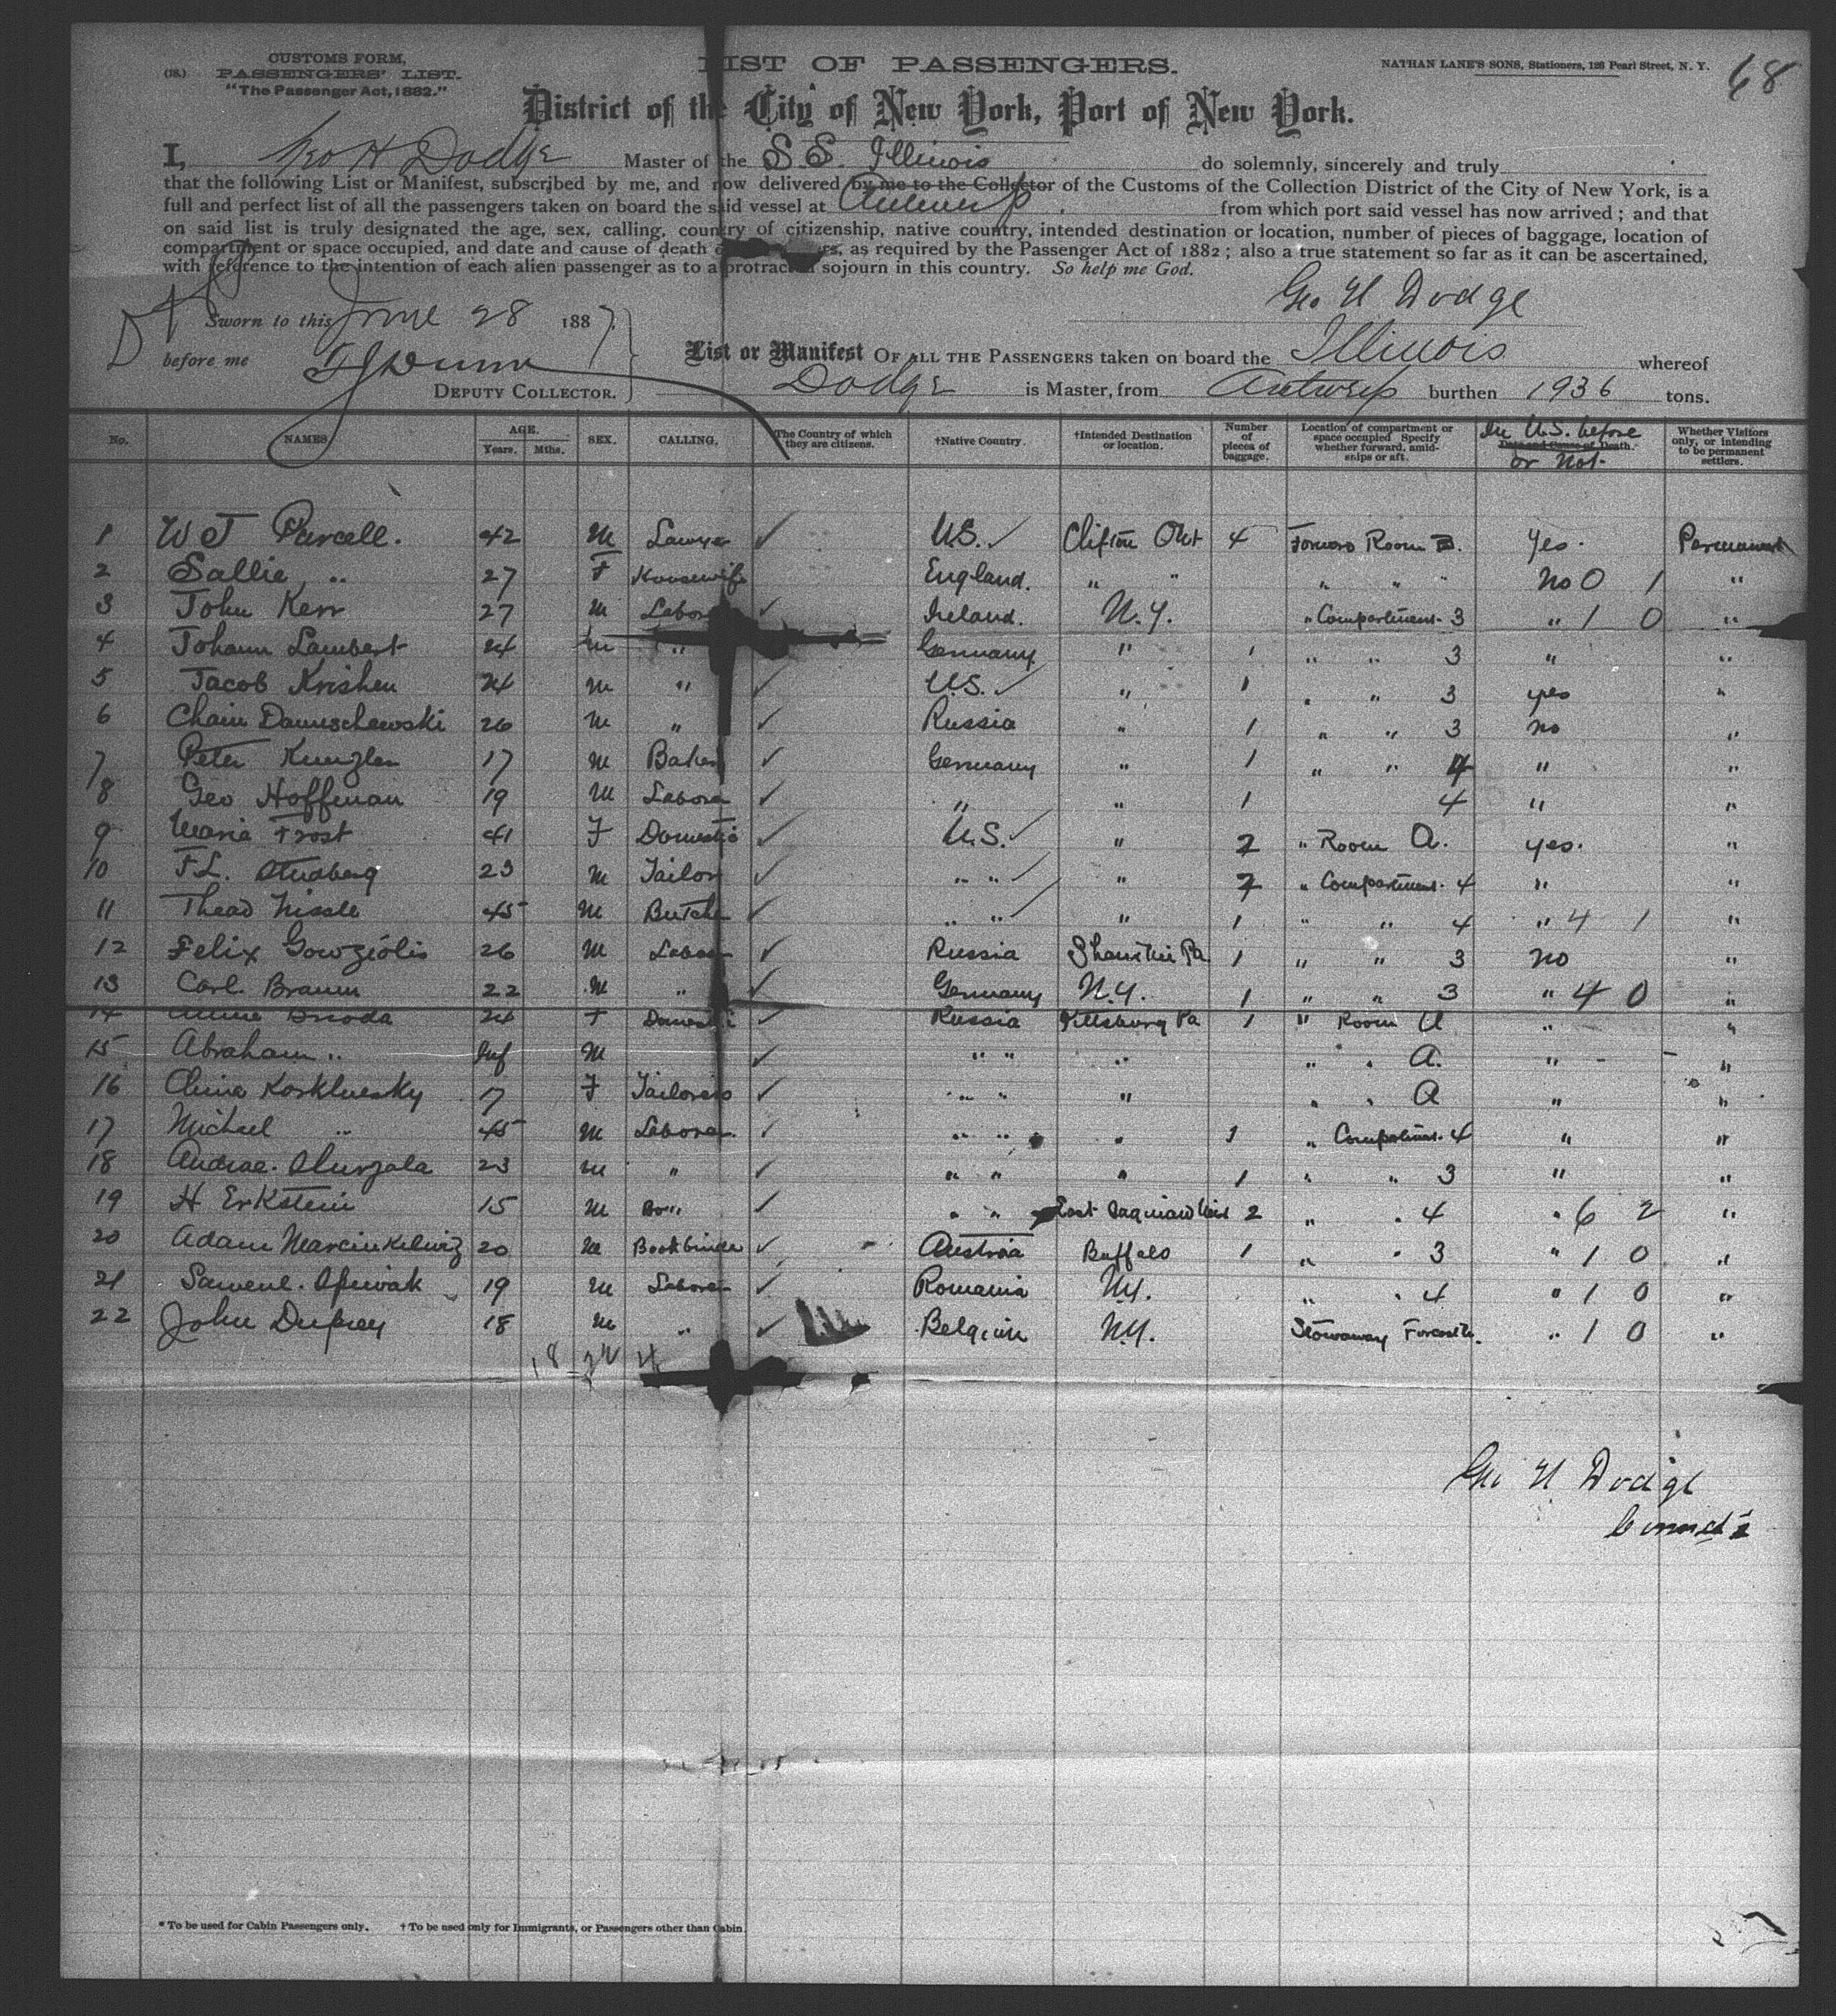 CUSTOMS FORM,
(18.) PASSENGERS' LIST.
"The Passenger Act, 1882."
LIST OF PASSENGERS.
NATHAN LANE'S SONS, Stationers, 198 Pearl Street, N. Y.
68
District of the City of New York, Port of New York.
I, Geo H Dodge Master of the S.S. Illinois do solemnly, sincerely and truly
that the following List or Manifest, subscribed by me, and now delivered by me to the Collector of the Customs of the Collection District of the City of New York, is a
full and perfect list of all the passengers taken on board the said vessel at Antwerp from which port said vessel has now arrived; and that
on said list is truly designated the age, sex, calling, country of citizenship, native country, intended destination or location, number of pieces of baggage, location of
compartment or space occupied, and date and cause of death as required by the Passenger Act of 1882; also a true statement so far as it can be ascertained,
with reference to the intention of each alien passenger as to a protracted sojourn in this country. So help me God.
Geo H Dodge
Sworn to this June 28 1887.
before me
DEPUTY COLLECTOR.
List or Manifest OF ALL THE PASSENGERS taken on board the Illinois whereof
Dodge is Master, from Antwerp burthen 1936 tons.
No. NAMES AGE. Years. Mths. SEX. CALLING. The Country of which they are citizens. †Native Country. †Intended Destination or location. Number of pieces of baggage. Location of compartment or space occupied Specify whether forward, amidships or aft. In U.S. before or not. Date and Cause of Death. Whether Visitors only, or intending to be permanent settlers.
1 W J Purcell. 42 M Lawyer ✓ U.S. ✓ Clifton Ont 4 Forward Room B. Yes. Permanent
2 Sallie " 27 F Housewife England. " " " " " No 0 1 "
3 John Kerr 27 M Labor ✓ Ireland. N.Y. " Compartment 3 " 1 0 "
4 Johann Lambert 24 M " Germany " 1 " " 3 " "
5 Jacob Krishen 24 M " ✓ U.S. ✓ " 1 " " 3 yes "
6 Chaim Damuschewski 26 M " ✓ Russia " 1 " " 3 no "
7 Peter Kunzler 17 M Baker ✓ Germany " 1 " " 4 " "
8 Geo Hoffman 19 M Labore ✓ " " 1 4 " "
9 Maria Frost 41 F Domestic ✓ U.S. ✓ " 2 " Room A. yes. "
10 F.L. Studberg 23 M Tailor ✓ " " ✓ " 2 " Compartment 4 " "
11 Thead Nissle 45 M Butche ✓ " " ✓ " 1 " " 4 " 4 1 "
12 Felix Gowziolis 26 M Labor ✓ Russia Shamokin Pa 1 " " 3 no "
13 Carl Braun 22 M " ✓ Germany N.Y. 1 " " 3 " 4 0 "
14 24 F Domestic ✓ Russia Pittsburg Pa 1 " Room A " "
15 Abraham " Inf M ✓ " " " " " A. " "
16 17 F Tailoress ✓ " " " " " A " "
17 Michael " 45 M Laborer. ✓ " " " 1 " Compartment 4 " "
18 23 M " ✓ " " " 1 " " 3 " "
19 H Erkstein 15 M ✓ " " East Saginaw 2 " " 4 " 6 2 "
20 Adam Marcinkiewiz 20 M Bookbinder ✓ Austria Buffalo 1 " " 3 " 1 0 "
21 Samuel Spiwak 19 M Laborer ✓ Romania N.Y. " " 4 " 1 0 "
22 John Duprey 18 M " ✓ Belgium N.Y. Stowaway Forecastle. " 1 0 "
18 4
Geo H Dodge
* To be used for Cabin Passengers only. † To be used only for Immigrants, or Passengers other than Cabin.